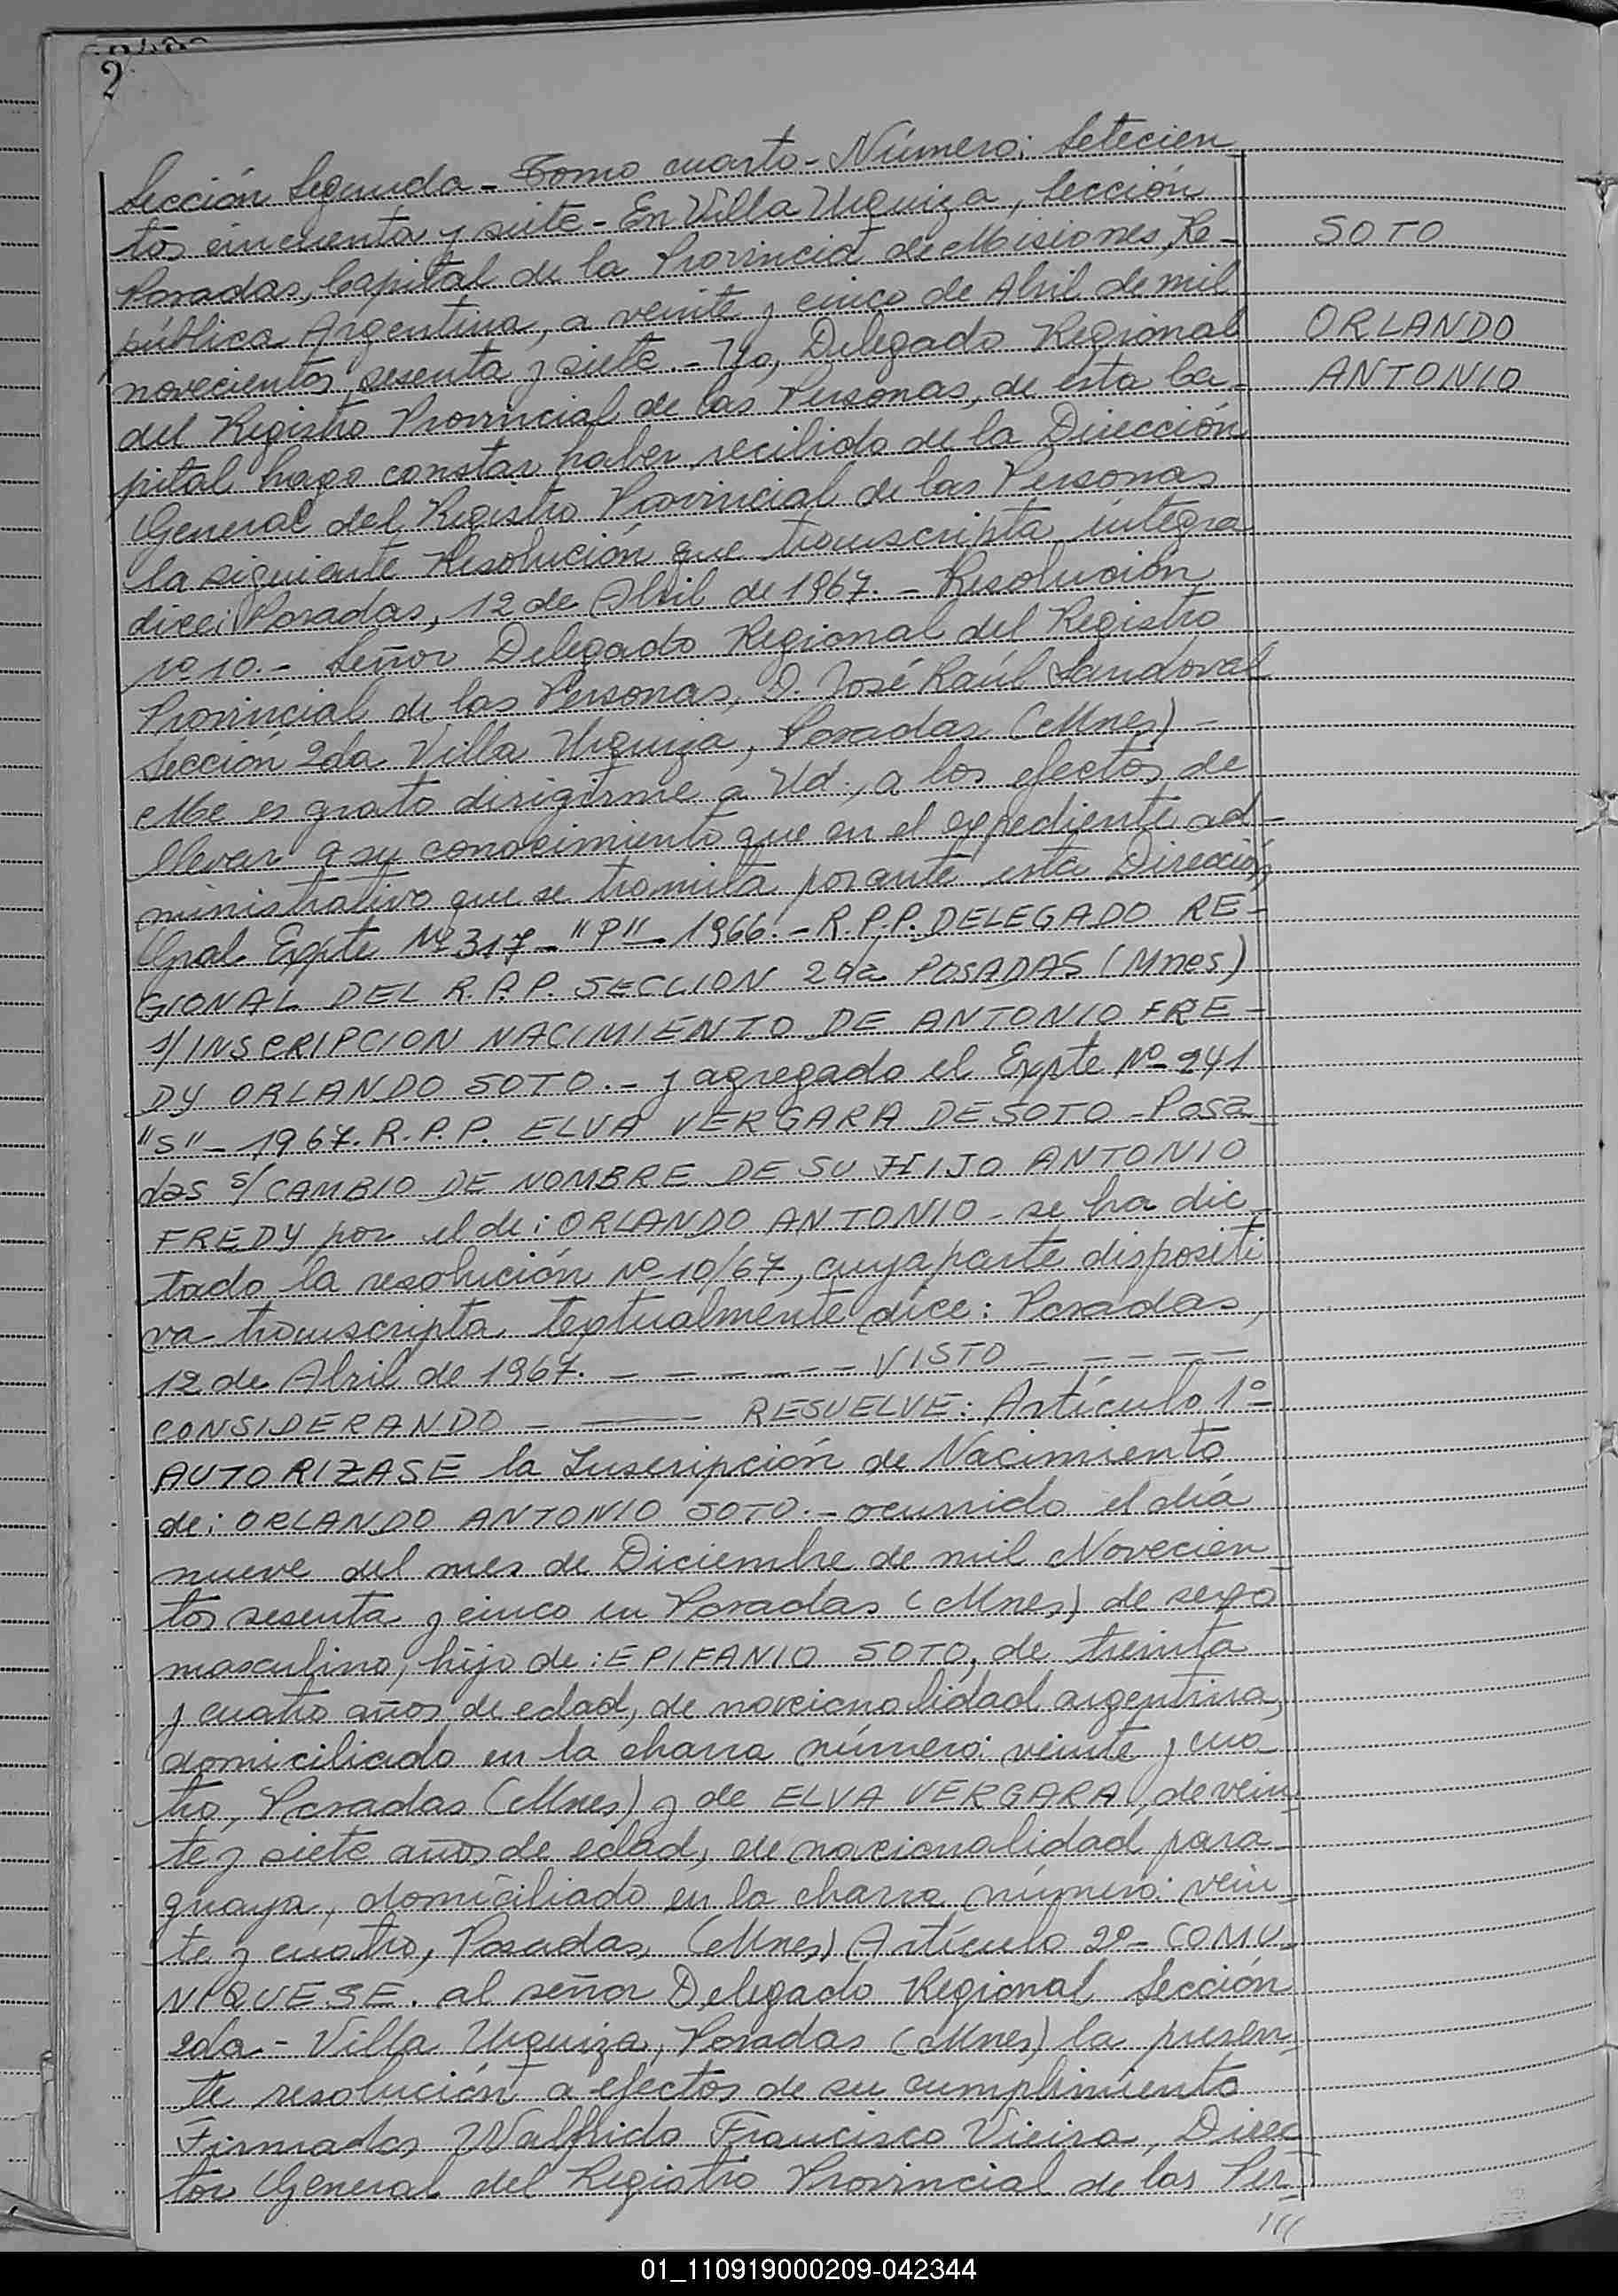 2
Sección Segunda - Tomo cuarto - Número: Setecien
tos cincuenta y siete - En Villa Urquiza, Sección
Posadas, Capital de la Provincia de Misiones, Re-
pública Argentina, a veinte y cinco de Abril de mil
novecientos sesenta y siete. - Yo, Delegado Regional
del Registro Provincial de las Personas, de esta Ca-
pital hago constar haber recibido de la Dirección
General del Registro Provincial de las Personas
la siguiente Resolución que transcripta integra
dice: Posadas, 12 de Abril de 1967. - Resolución
Nº 10. - Señor Delegado Regional del Registro
Provincial de las Personas, D. José Raúl Sandoval
Sección 2da Villa Urquiza, Posadas (Mnes) -
Me es grato dirigirme a Ud., a los efectos de
llevar a su conocimiento que en el expediente ad-
ministrativo que se tramita por ante esta Dirección
Gral. Expte Nº 317 - "P" - 1966. - R.P.P. DELEGADO RE-
GIONAL DEL R.P.P. SECCION 2da POSADAS (Mnes)
s/INSCRIPCION NACIMIENTO DE ANTONIO FRE-
DY ORLANDO SOTO. - y agregado el Expte Nº 241
"S" - 1967. R.P.P. ELVA VERGARA DE SOTO - Posa
das s/ CAMBIO DE NOMBRE DE SU HIJO ANTONIO
FREDY por el de: ORLANDO ANTONIO - se ha dic
tado la resolución Nº 10/67, cuya parte dispositi
va transcripta textualmente dice: Posadas,
12 de Abril de 1967. - - - - - - VISTO - - - - -
CONSIDERANDO - - - RESUELVE: Artículo 1º -
AUTORIZASE la Inscripción de Nacimiento
de: ORLANDO ANTONIO SOTO. - ocurrido el día
nueve del mes de Diciembre de mil Novecien
tos sesenta y cinco en Posadas (Mnes) de sexo
masculino, hijo de: EPIFANIO SOTO, de treinta
y cuatro años de edad, de nacionalidad argentina,
domiciliado en la chacra número: veinte y cua
tro, Posadas (Mnes) y de ELVA VERGARA, de vein
te y siete años de edad, de nacionalidad para
guaya, domiciliado en la chacra número: vein
te y cuatro, Posadas, (Mnes) Artículo 2º - COMU-
NIQUESE. al señor Delegado Regional Sección
2da - Villa Urquiza, Posadas (Mnes) la presen
te resolución a efectos de su cumplimiento
Firmado, Walfrido Francisco Vieira, Direc
tor General del Registro Provincial de las Per
///
SOTO
ORLANDO
ANTONIO
01_110919000209-042344